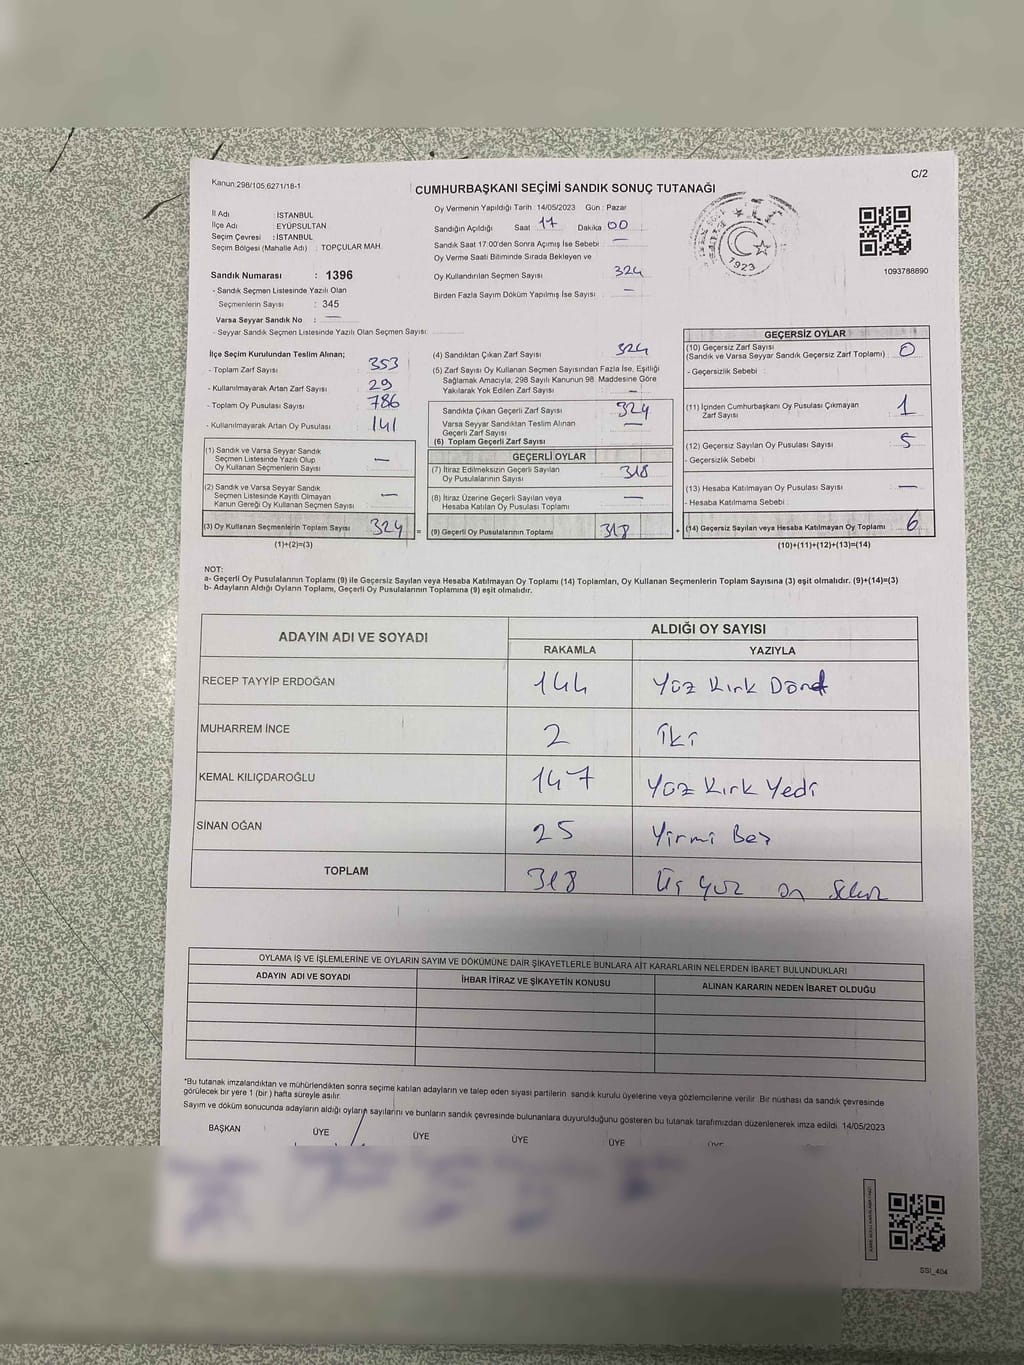 Kanun.298/105,6271/18-1
CUMHURBAŞKANI SEÇİMİ SANDIK SONUÇ TUTANAĞI
C/2
İl Adı : İSTANBUL
İlçe Adı : EYÜPSULTAN
Seçim Çevresi : İSTANBUL
Seçim Bölgesi (Mahalle Adı) : TOPÇULAR MAH.
Sandık Numarası : 1396
- Sandık Seçmen Listesinde Yazılı Olan
Seçmenlerin Sayısı : 345
Varsa Seyyar Sandık No : —
- Seyyar Sandık Seçmen Listesinde Yazılı Olan Seçmen Sayısı:
Oy Vermenin Yapıldığı Tarih 14/05/2023 Gün : Pazar
Sandığın Açıldığı Saat 17 Dakika 00
Sandık Saat 17:00'den Sonra Açımış İse Sebebi —
Oy Verme Saati Bitiminde Sırada Bekleyen ve
Oy Kullandırılan Seçmen Sayısı 324
Birden Fazla Sayım Döküm Yapılmış İse Sayısı —
1923
1093788890
İlçe Seçim Kurulundan Teslim Alınan;
- Toplam Zarf Sayısı 353
- Kullanılmayarak Artan Zarf Sayısı 29
- Toplam Oy Pusulası Sayısı 786
- Kullanılmayarak Artan Oy Pusulası 141
(1) Sandık ve Varsa Seyyar Sandık
Seçmen Listesinde Yazılı Olup
Oy Kullanan Seçmenlerin Sayısı —
(2) Sandık ve Varsa Seyyar Sandık
Seçmen Listesinde Kayıtlı Olmayan
Kanun Gereği Oy Kullanan Seçmen Sayısı —
(3) Oy Kullanan Seçmenlerin Toplam Sayısı 324 =
(1)+(2)=(3)
(4) Sandıktan Çıkan Zarf Sayısı 324
(5) Zarf Sayısı Oy Kullanan Seçmen Sayısından Fazla İse, Eşitliği
Sağlamak Amacıyla, 298 Sayılı Kanunun 98. Maddesine Göre
Yakılarak Yok Edilen Zarf Sayısı —
Sandıkta Çıkan Geçerli Zarf Sayısı 324
Varsa Seyyar Sandıktan Teslim Alınan
Geçerli Zarf Sayısı —
(6) Toplam Geçerli Zarf Sayısı
GEÇERLİ OYLAR
(7) İtiraz Edilmeksizin Geçerli Sayılan
Oy Pusulalarının Sayısı 318
(8) İtiraz Üzerine Geçerli Sayılan veya
Hesaba Katılan Oy Pusulası Toplamı —
(9) Geçerli Oy Pusulalarının Toplamı 318 +
GEÇERSİZ OYLAR
(10) Geçersiz Zarf Sayısı
(Sandık ve Varsa Seyyar Sandık Geçersiz Zarf Toplamı) 0
- Geçersizlik Sebebi :
(11) İçinden Cumhurbaşkanı Oy Pusulası Çıkmayan
Zarf Sayısı 1
(12) Geçersiz Sayılan Oy Pusulası Sayısı 5
- Geçersizlik Sebebi :
(13) Hesaba Katılmayan Oy Pusulası Sayısı —
- Hesaba Katılmama Sebebi :
(14) Geçersiz Sayılan veya Hesaba Katılmayan Oy Toplamı 6
(10)+(11)+(12)+(13)=(14)
NOT:
a- Geçerli Oy Pusulalarının Toplamı (9) ile Geçersiz Sayılan veya Hesaba Katılmayan Oy Toplamı (14) Toplamları, Oy Kullanan Seçmenlerin Toplam Sayısına (3) eşit olmalıdır. (9)+(14)=(3)
b- Adayların Aldığı Oyların Toplamı, Geçerli Oy Pusulalarının Toplamına (9) eşit olmalıdır.
ADAYIN ADI VE SOYADI
ALDIĞI OY SAYISI
RAKAMLA YAZIYLA
RECEP TAYYİP ERDOĞAN 144 Yüz Kırk Dört
MUHARREM İNCE 2 İki
KEMAL KILIÇDAROĞLU 147 Yüz Kırk Yedi
SİNAN OĞAN 25 Yirmi Beş
TOPLAM 318 Üç yüz on Sekiz
OYLAMA İŞ VE İŞLEMLERİNE VE OYLARIN SAYIM VE DÖKÜMÜNE DAİR ŞİKAYETLERLE BUNLARA AİT KARARLARIN NELERDEN İBARET BULUNDUKLARI
ADAYIN ADI VE SOYADI İHBAR İTİRAZ VE ŞİKAYETİN KONUSU ALINAN KARARIN NEDEN İBARET OLDUĞU
*Bu tutanak imzalandıktan ve mühürlendikten sonra seçime katılan adayların ve talep eden siyasi partilerin sandık kurulu üyelerine veya gözlemcilerine verilir. Bir nüshası da sandık çevresinde
görülecek bir yere 1 (bir ) hafta süreyle asılır.
Sayım ve döküm sonucunda adayların aldığı oyların sayılarını ve bunların sandık çevresinde bulunanlara duyurulduğunu gösteren bu tutanak tarafımızdan düzenlenerek imza edildi. 14/05/2023
BAŞKAN ÜYE ÜYE ÜYE ÜYE ÜYE
SSI_404